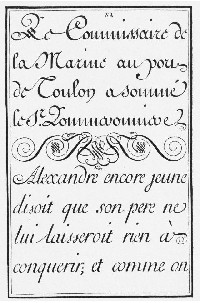 Le Commissaire de
la Marine au por
de Toulon a sommé
le Sr.
Alexandre encore jeune
disoit que son pere ne
lui laisseroit rien à
conquerir; et comme on